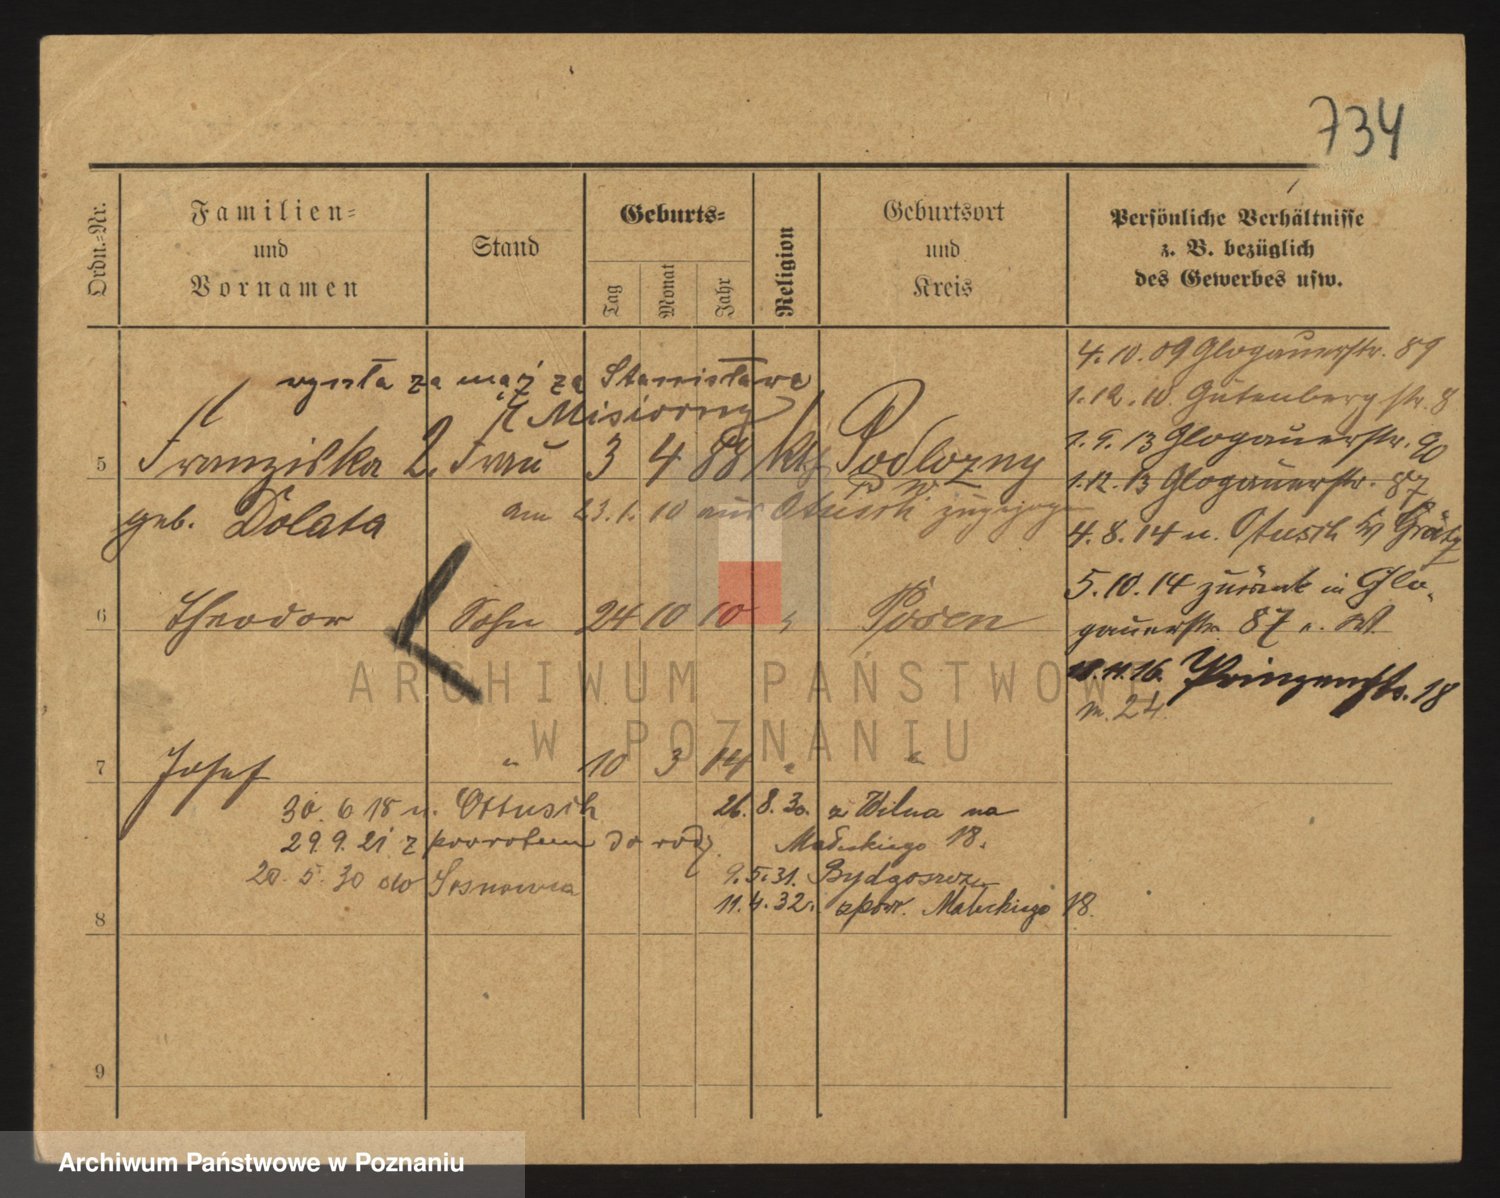 734
Ordn.=Nr.
Familien=
und
Vornamen
Stand
Geburts=
Tag
Monat
Jahr
Religion
Geburtsort
und
Kreis
Persönliche Verhältnisse
z. B. bezüglich
des Gewerbes usw.
wyszła za mąż za Stanisława
Misiorny
5 Franziska 2. Frau 3 4 88 kth Podlozny
geb. Dolata
am 23.1.10 aus Otusch zugezogen
6 Theodor Sohn 24 10 10 " Posen
7 Josef " 10 3 14 " "
30. 6 18 n. Ottusch
29.9.21 z powrotem do rodz.
20. 5. 30 do Sosnowca
26.8.30. z Wilna na
Małeckiego 18.
9.5.31. Bydgoszcz
11.4.32. zpow. Małeckiego 18.
8
9
4.10.09 Glogauerstr. 89
1.12.10. Gutenbergstr. 8
1.9.13 Glogauerstr. 90
1.12.13 Glogauerstr. 87
4.8.14 n. Otusch Kr Grätz
5.10.14 zurück in Glo-
gauerstr. 87
11.16. Prinzenstr. 18
w. 24
ARCHIWUM PAŃSTWOWE
W POZNANIU
Archiwum Państwowe w Poznaniu